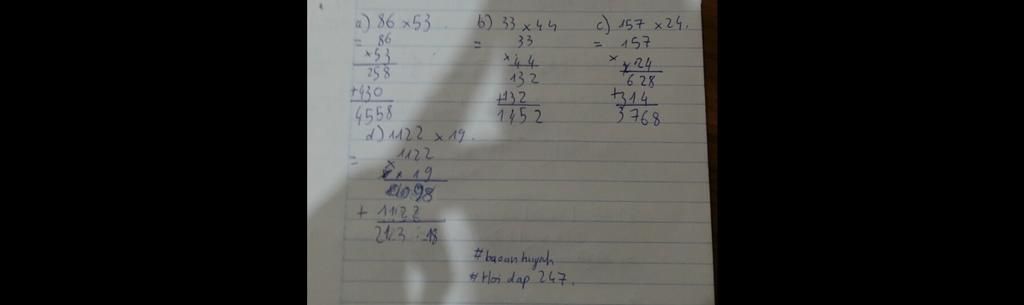 a) 86 x 53. b) 33 x 44 c) 157 x 24.
= 86 = 33 = 157
x 53 x 44 x 24
258 132 628
+430 +132 +314
4558 1452 3768
d) 1122 x 19.
= x 1122
x 19
+ 1122
#baoanhuynh
#Hoi dap 247.